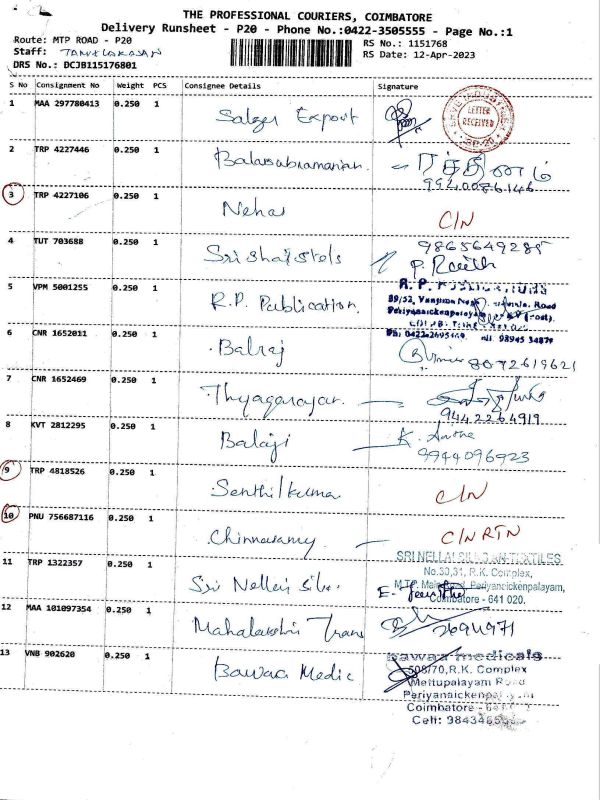 THE PROFESSIONAL COURIERS, COIMBATORE
Delivery Runsheet - P20 - Phone No.:0422-3505555 - Page No.:1
Route: MTP ROAD - P20
RS No.: 1151768
Staff:
RS Date: 12-Apr-2023
DRS No.: DCJB115176801
S No Consignment No Weight PCS Consignee Details Signature
1 MAA 297780413 0.250 1 Salzer Export
LETTER RECEIVED
2 TRP 4227446 0.250 1 Balasubramanian - ரத்தினம்
9940086146
3 TRP 4227106 0.250 1 Neha C/N
4 TUT 703688 0.250 1 9865649285
5 VPM 5001255 0.250 1 R.P. Publication. R.P.
6 CNR 1652011 0.250 1 Balraj 8072619621
7 CNR 1652469 0.250 1 Thyagarajan. -
9442264919
8 KVT 2812295 0.250 1 Balaji - K.
9944096923
9 TRP 4818526 0.250 1 Senthilkumar C/N
10 PNU 756687116 0.250 1 Chinnasamy - C/N RTN
11 TRP 1322357 0.250 1 Sri Nellai Silk.
SRI NELLAI TEXTILES
No.30,31, R.K. Complex,
M.T.P. Main Road, Periyanaickenpalayam,
Coimbatore - 641 020.
12 MAA 101097354 0.250 1 Mahalakshmi Trans 2694971
13 VNB 902620 0.250 1 Bawaa Medic
Bawaa medicals
508/70,R.K. Complex
Mettupalayam Road
Coimbatore -
Cell: